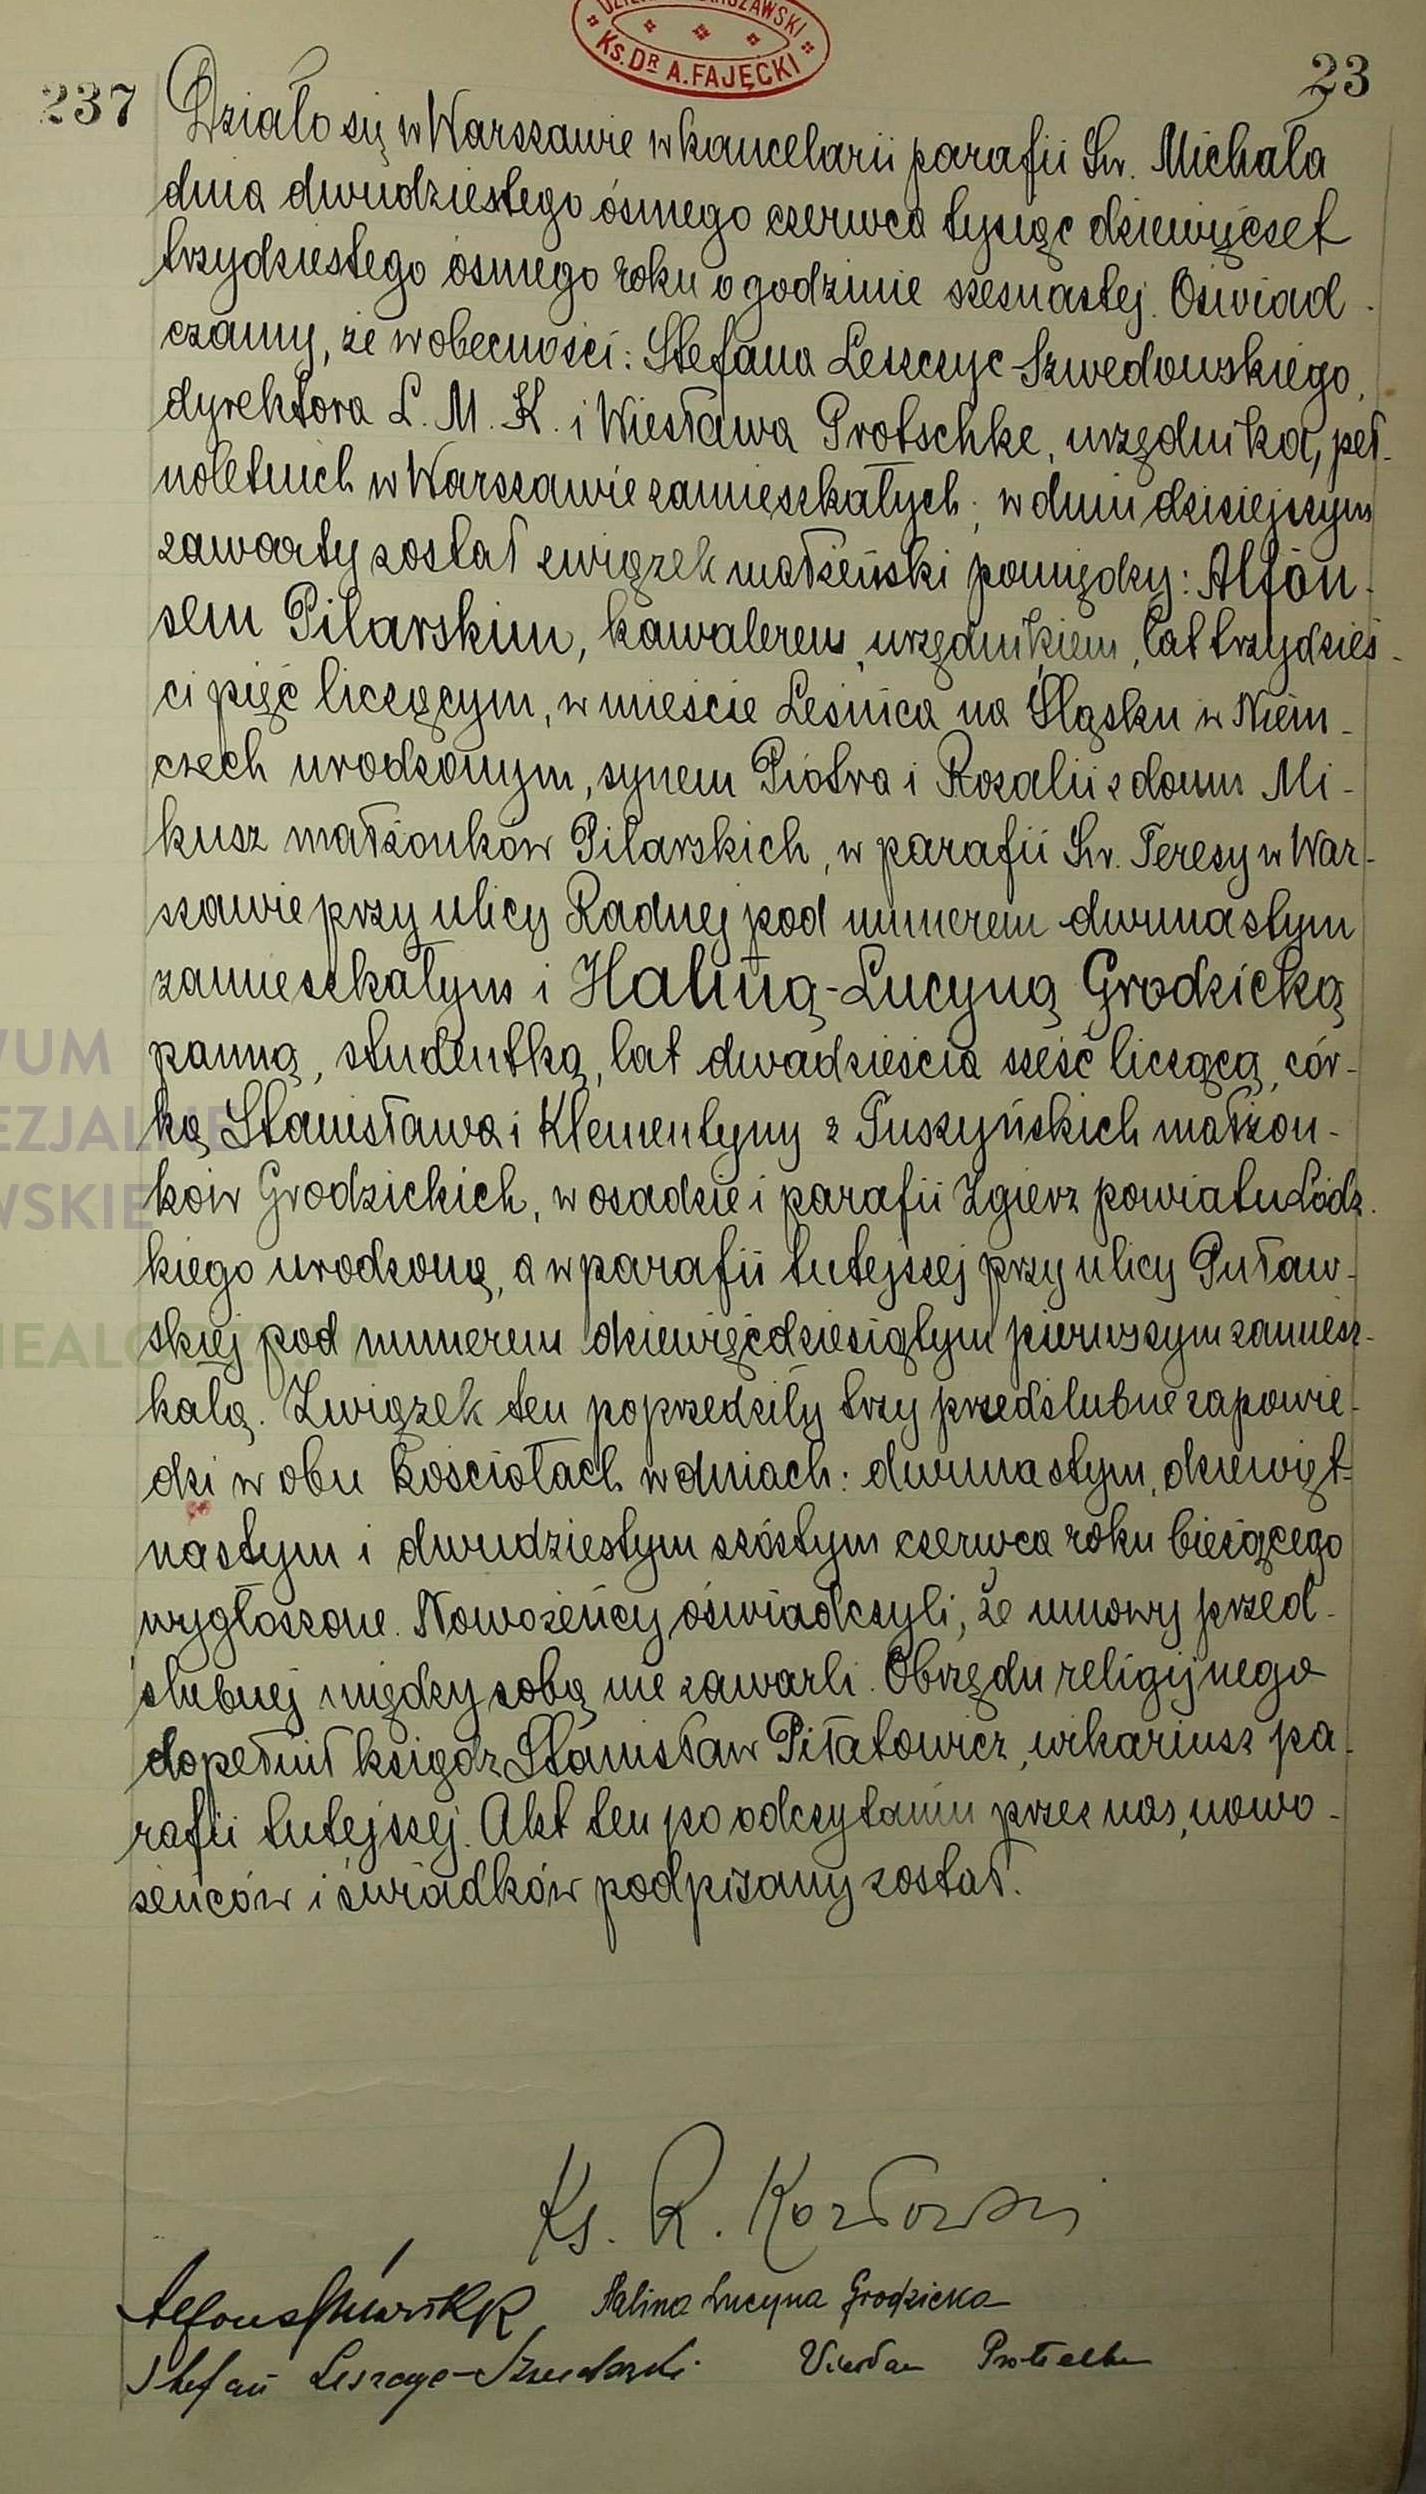 WARSZAWSKI
Ks. DR A. FAJĘCKI
23
237
Działo się w Warszawie w kancelarii parafii Św. Michała
dnia dwudziestego ósmego czerwca tysiąc dziewięćset
trzydziestego ósmego roku o godzinie szesnastej. Oświad-
czamy, że w obecności: Stefana Leszczyc-Szwedowskiego,
dyrektora L. M. K. i Wiesława Protschke, urzędnika, peł-
noletnich w Warszawie zamieszkałych; w dniu dzisiejszym
zawarty został związek małżeński pomiędzy: Alfon-
sem Pilarskim, kawalerem, urzędnikiem, lat trzydzieś-
ci pięć liczącym, w mieście Leśnica na Śląsku w Niem-
czech urodzonym, synem Piotra i Rozalii z domu Mi-
kusz małżonków Pilarskich, w parafii Św. Teresy w War-
szawie przy ulicy Radnej pod numerem dwunastym
zamieszkałym i Haliną-Lucyną Grodzicką
panną, studentką, lat dwadzieścia sześć liczącą, cór-
ką Stanisława i Klementyny z Tuszyńskich małżon-
ków Grodzickich, w osadzie i parafii Zgierz powiatu Łódz-
kiego urodzoną, a w parafii tutejszej przy ulicy Puław-
skiej pod numerem dziewięćdziesiątym pierwszym zamiesz-
kałą. Związek ten poprzedziły trzy przedślubne zapowie-
dzi w obu kościołach w dniach: dwunastym, dziewięt-
nastym i dwudziestym szóstym czerwca roku bieżącego
wygłoszone. Nowożeńcy oświadczyli, że umowy przed-
ślubnej między sobą nie zawarli. Obrzędu religijnego
dopełnił ksiądz Stanisław Piłatowicz, wikariusz pa-
rafii tutejszej. Akt ten po odczytaniu przez nas, nowo-
żeńców i świadków podpisany został.
Ks. R. Kozłowski
Alfons Pilarski Halina Lucyna Grodzicka
Stefan Leszczyc-Szwedowski Wiesław Protschke